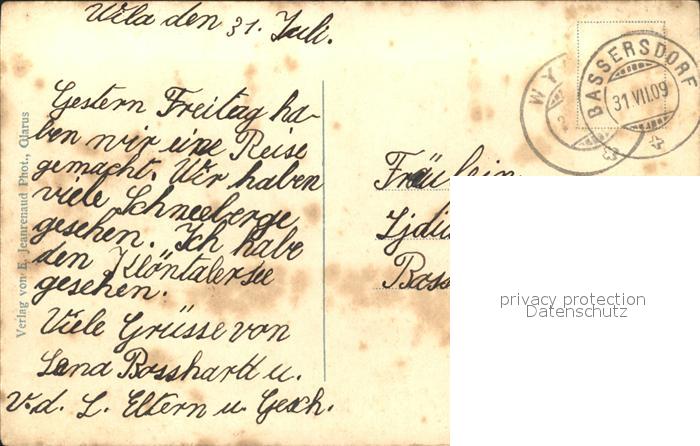 Wila den 31. Juli.
Gestern Freitag ha-
ben wir eine Reise
gemacht. Wir haben
viele Schneeberge
gesehen. Ich habe
den Klöntalersee
gesehen.
Viele Grüsse von
Lena Bosshard u.
v. d. L. Eltern u. Gesch.
Verlag von E. Jeanrenaud Phot., Glarus
WY
BASSERSDORF
31.VII.09
Fräulein
privacy protection
Datenschutz